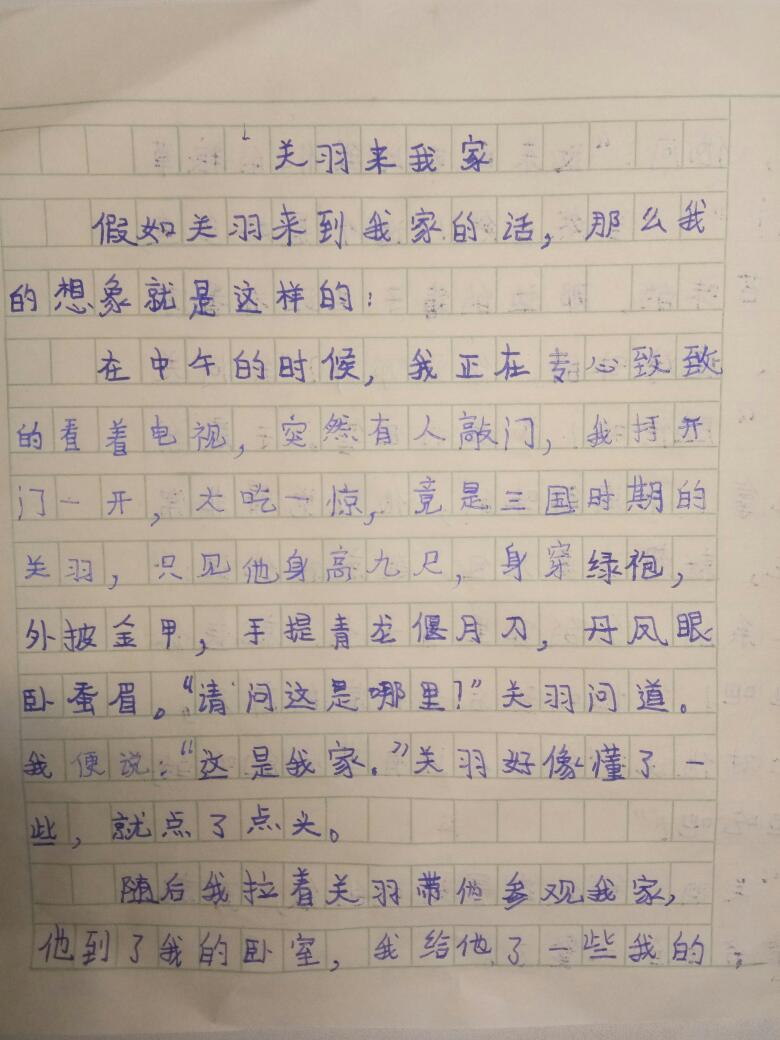 关羽来我家
假如关羽来到我家的话,那么我
的想象就是这样的:
在中午的时候,我正在专心致致
的看着电视,突然有人敲门,我打开
门一开,大吃一惊,竟是三国时期的
关羽,只见他身高九尺,身穿绿袍,
外披金甲,手提青龙偃月刀,丹凤眼
卧蚕眉。“请问这是哪里?”关羽问道。
我便说:“这是我家.”关羽好像懂了一
些,就点了点头。
随后我拉着关羽带他参观我家,
他到了我的卧室,我给他了一些我的